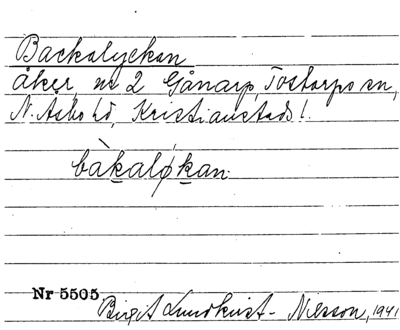 Backalyckan
åker, nr 2 Gånarp, Tostarps sn,
N. Åsbo hd, Kristianstads l.
bàkaløkan.
Nr 5505
Birgit Lundkvist-Nilsson, 1941